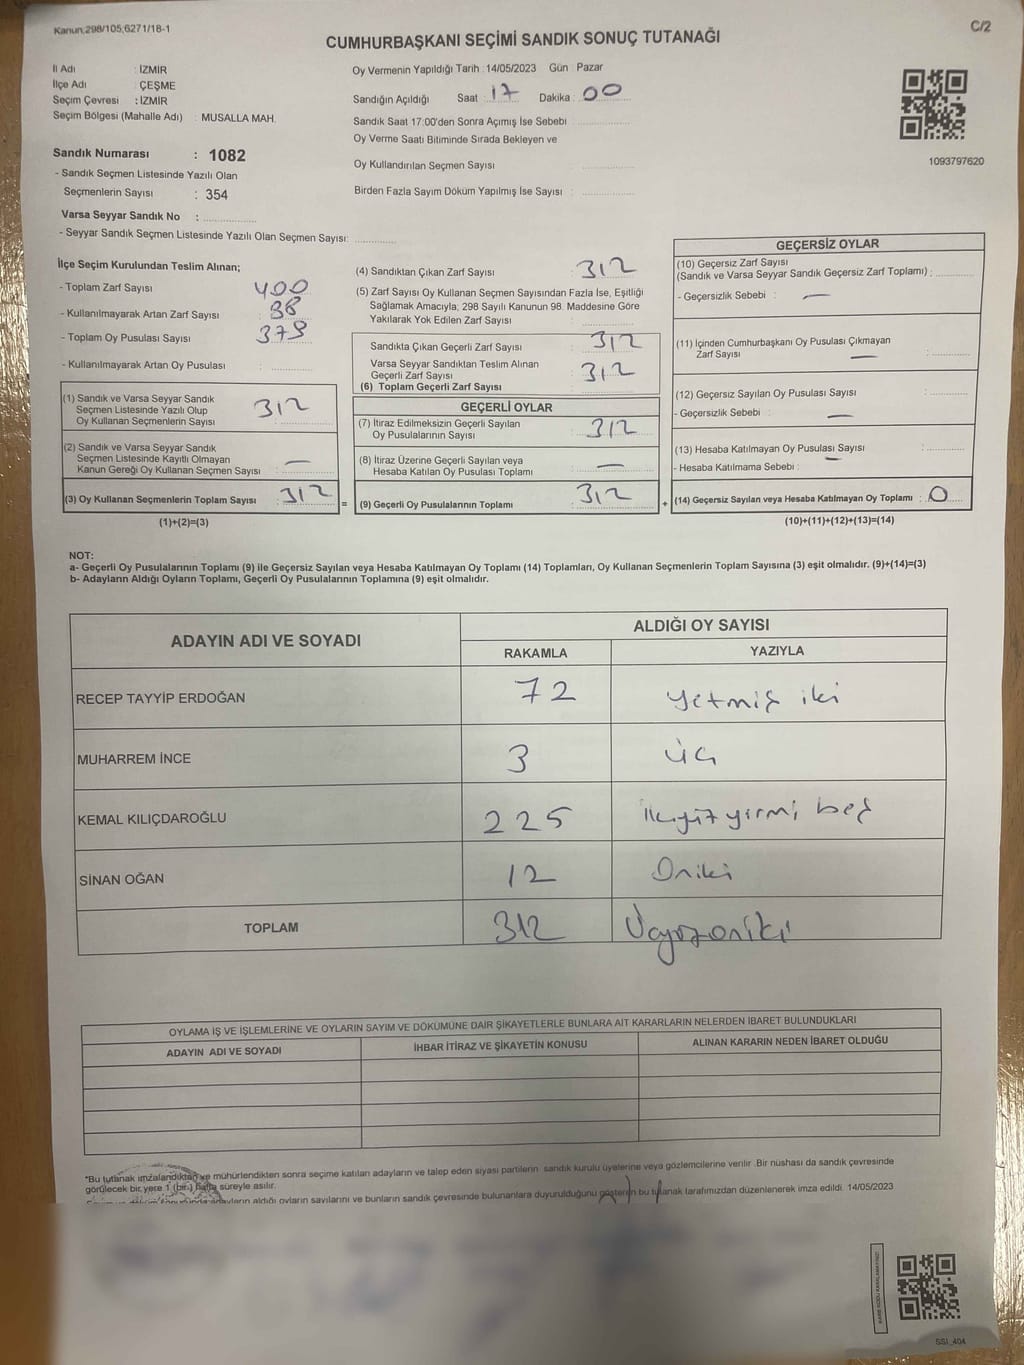 Kanun;298/105;6271/18-1
C/2
CUMHURBAŞKANI SEÇİMİ SANDIK SONUÇ TUTANAĞI
İl Adı : İZMİR
İlçe Adı : ÇEŞME
Seçim Çevresi : İZMİR
Seçim Bölgesi (Mahalle Adı) : MUSALLA MAH.
Sandık Numarası : 1082
- Sandık Seçmen Listesinde Yazılı Olan
Seçmenlerin Sayısı : 354
Varsa Seyyar Sandık No :
- Seyyar Sandık Seçmen Listesinde Yazılı Olan Seçmen Sayısı:
Oy Vermenin Yapıldığı Tarih : 14/05/2023 Gün : Pazar
Sandığın Açıldığı Saat : 17 Dakika : 00
Sandık Saat 17:00'den Sonra Açmış İse Sebebi :
Oy Verme Saati Bitiminde Sırada Bekleyen ve
Oy Kullandırılan Seçmen Sayısı
Birden Fazla Sayım Döküm Yapılmış İse Sayısı :
1093797620
İlçe Seçim Kurulundan Teslim Alınan;
- Toplam Zarf Sayısı : 400
- Kullanılmayarak Artan Zarf Sayısı : 88
- Toplam Oy Pusulası Sayısı : 379
- Kullanılmayarak Artan Oy Pusulası :
(1) Sandık ve Varsa Seyyar Sandık
Seçmen Listesinde Yazılı Olup
Oy Kullanan Seçmenlerin Sayısı : 312
(2) Sandık ve Varsa Seyyar Sandık
Seçmen Listesinde Kayıtlı Olmayan
Kanun Gereği Oy Kullanan Seçmen Sayısı : —
(3) Oy Kullanan Seçmenlerin Toplam Sayısı : 312 =
(1)+(2)=(3)
(4) Sandıktan Çıkan Zarf Sayısı : 312
(5) Zarf Sayısı Oy Kullanan Seçmen Sayısından Fazla İse, Eşitliği
Sağlamak Amacıyla; 298 Sayılı Kanunun 98. Maddesine Göre
Yakılarak Yok Edilen Zarf Sayısı :
Sandıkta Çıkan Geçerli Zarf Sayısı : 312
Varsa Seyyar Sandıktan Teslim Alınan
Geçerli Zarf Sayısı : 312
(6) Toplam Geçerli Zarf Sayısı :
GEÇERLİ OYLAR
(7) İtiraz Edilmeksizin Geçerli Sayılan
Oy Pusulalarının Sayısı : 312
(8) İtiraz Üzerine Geçerli Sayılan veya
Hesaba Katılan Oy Pusulası Toplamı : —
(9) Geçerli Oy Pusulalarının Toplamı : 312 +
GEÇERSİZ OYLAR
(10) Geçersiz Zarf Sayısı
(Sandık ve Varsa Seyyar Sandık Geçersiz Zarf Toplamı) :
- Geçersizlik Sebebi : —
(11) İçinden Cumhurbaşkanı Oy Pusulası Çıkmayan
Zarf Sayısı — :
(12) Geçersiz Sayılan Oy Pusulası Sayısı :
- Geçersizlik Sebebi : —
(13) Hesaba Katılmayan Oy Pusulası Sayısı :
- Hesaba Katılmama Sebebi : —
(14) Geçersiz Sayılan veya Hesaba Katılmayan Oy Toplamı : 0
(10)+(11)+(12)+(13)=(14)
NOT:
a- Geçerli Oy Pusulalarının Toplamı (9) ile Geçersiz Sayılan veya Hesaba Katılmayan Oy Toplamı (14) Toplamları, Oy Kullanan Seçmenlerin Toplam Sayısına (3) eşit olmalıdır. (9)+(14)=(3)
b- Adayların Aldığı Oyların Toplamı, Geçerli Oy Pusulalarının Toplamına (9) eşit olmalıdır.
ADAYIN ADI VE SOYADI
ALDIĞI OY SAYISI
RAKAMLA YAZIYLA
RECEP TAYYİP ERDOĞAN 72 yetmiş iki
MUHARREM İNCE 3 üç
KEMAL KILIÇDAROĞLU 225 ikiyüz yirmi beş
SİNAN OĞAN 12 Oniki
TOPLAM 312 Üçyüzoniki
OYLAMA İŞ VE İŞLEMLERİNE VE OYLARIN SAYIM VE DÖKÜMÜNE DAİR ŞİKAYETLERLE BUNLARA AİT KARARLARIN NELERDEN İBARET BULUNDUKLARI
ADAYIN ADI VE SOYADI İHBAR İTİRAZ VE ŞİKAYETİN KONUSU ALINAN KARARIN NEDEN İBARET OLDUĞU
*Bu tutanak imzalandıktan ve mühürlendikten sonra seçime katılan adayların ve talep eden siyasi partilerin sandık kurulu üyelerine veya gözlemcilerine verilir. Bir nüshası da sandık çevresinde
görülecek bir yere 1 (bir) hafta süreyle asılır.
adayların aldığı oyların sayılarını ve bunların sandık çevresinde bulunanlara duyurulduğunu gösteren bu tutanak tarafımızdan düzenlenerek imza edildi. 14/05/2023
KARE KODU KARALAMAYINIZ!
SSI_404